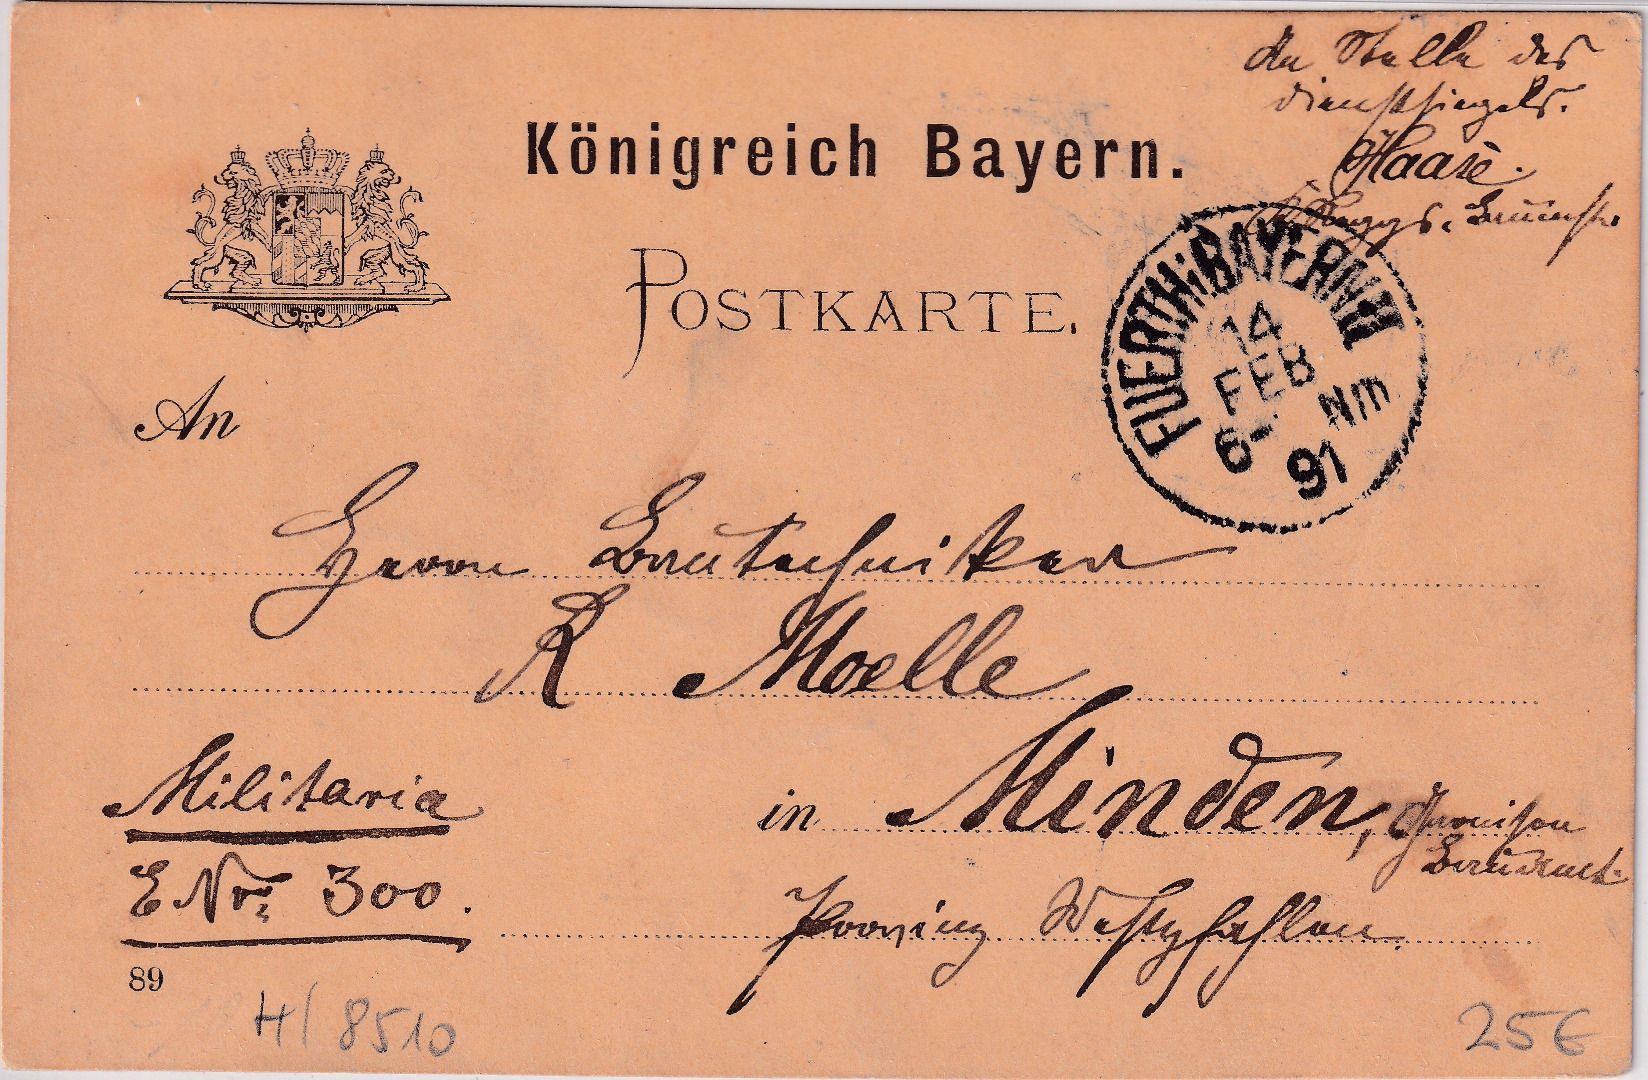 An Stelle des
Dienstsiegels.
Haase.
Königreich Bayern.
POSTKARTE.
FUERTH:BAYERN II
14
FEB
6- Nm
91
An
Herrn Bautechniker
R Moelle
Militaria
in Minden, Garnison
Bauamt.
E Nr: 300.
Provinz Westphalen.
89
H/8510
25€